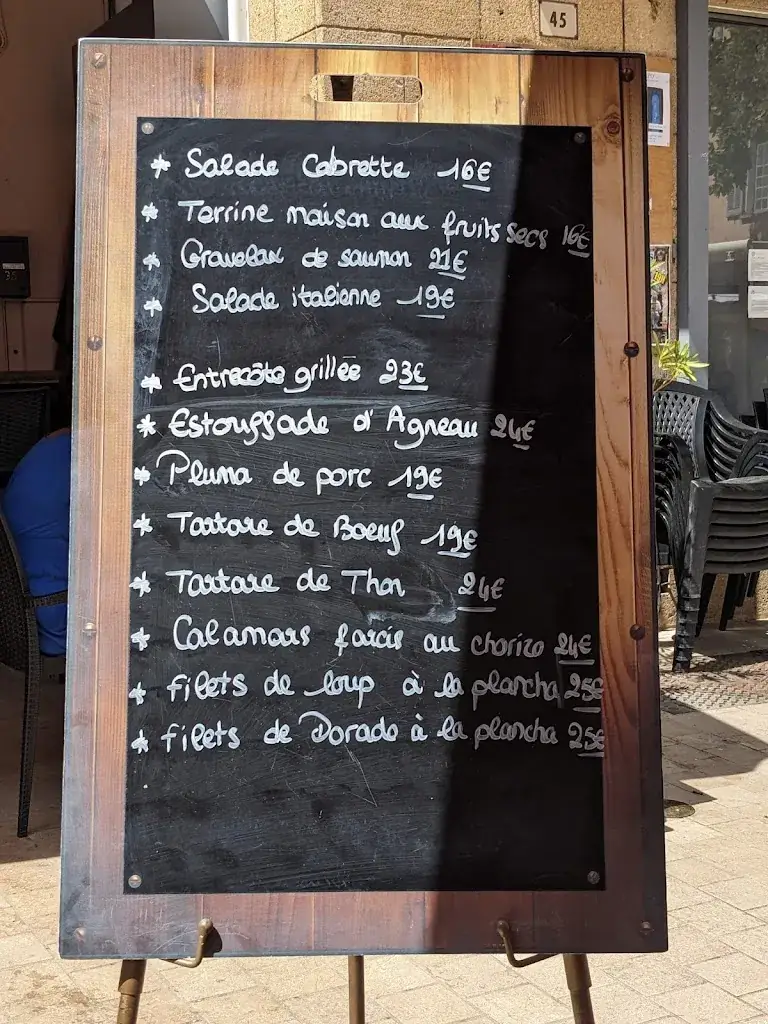 45
* Salade Cabrette 16€
* Terrine maison aux fruits secs 16€
* Gravelax de saumon 21€
* Salade italienne 19€
* Entrecôte grillée 23€
* Estouffade d'Agneau 24€
* Pluma de porc 19€
* Tartare de Boeuf 19€
* Tartare de Thon 24€
* Calamars farcis au chorizo 24€
* filets de loup à la plancha 25€
* filets de Dorade à la plancha 25€